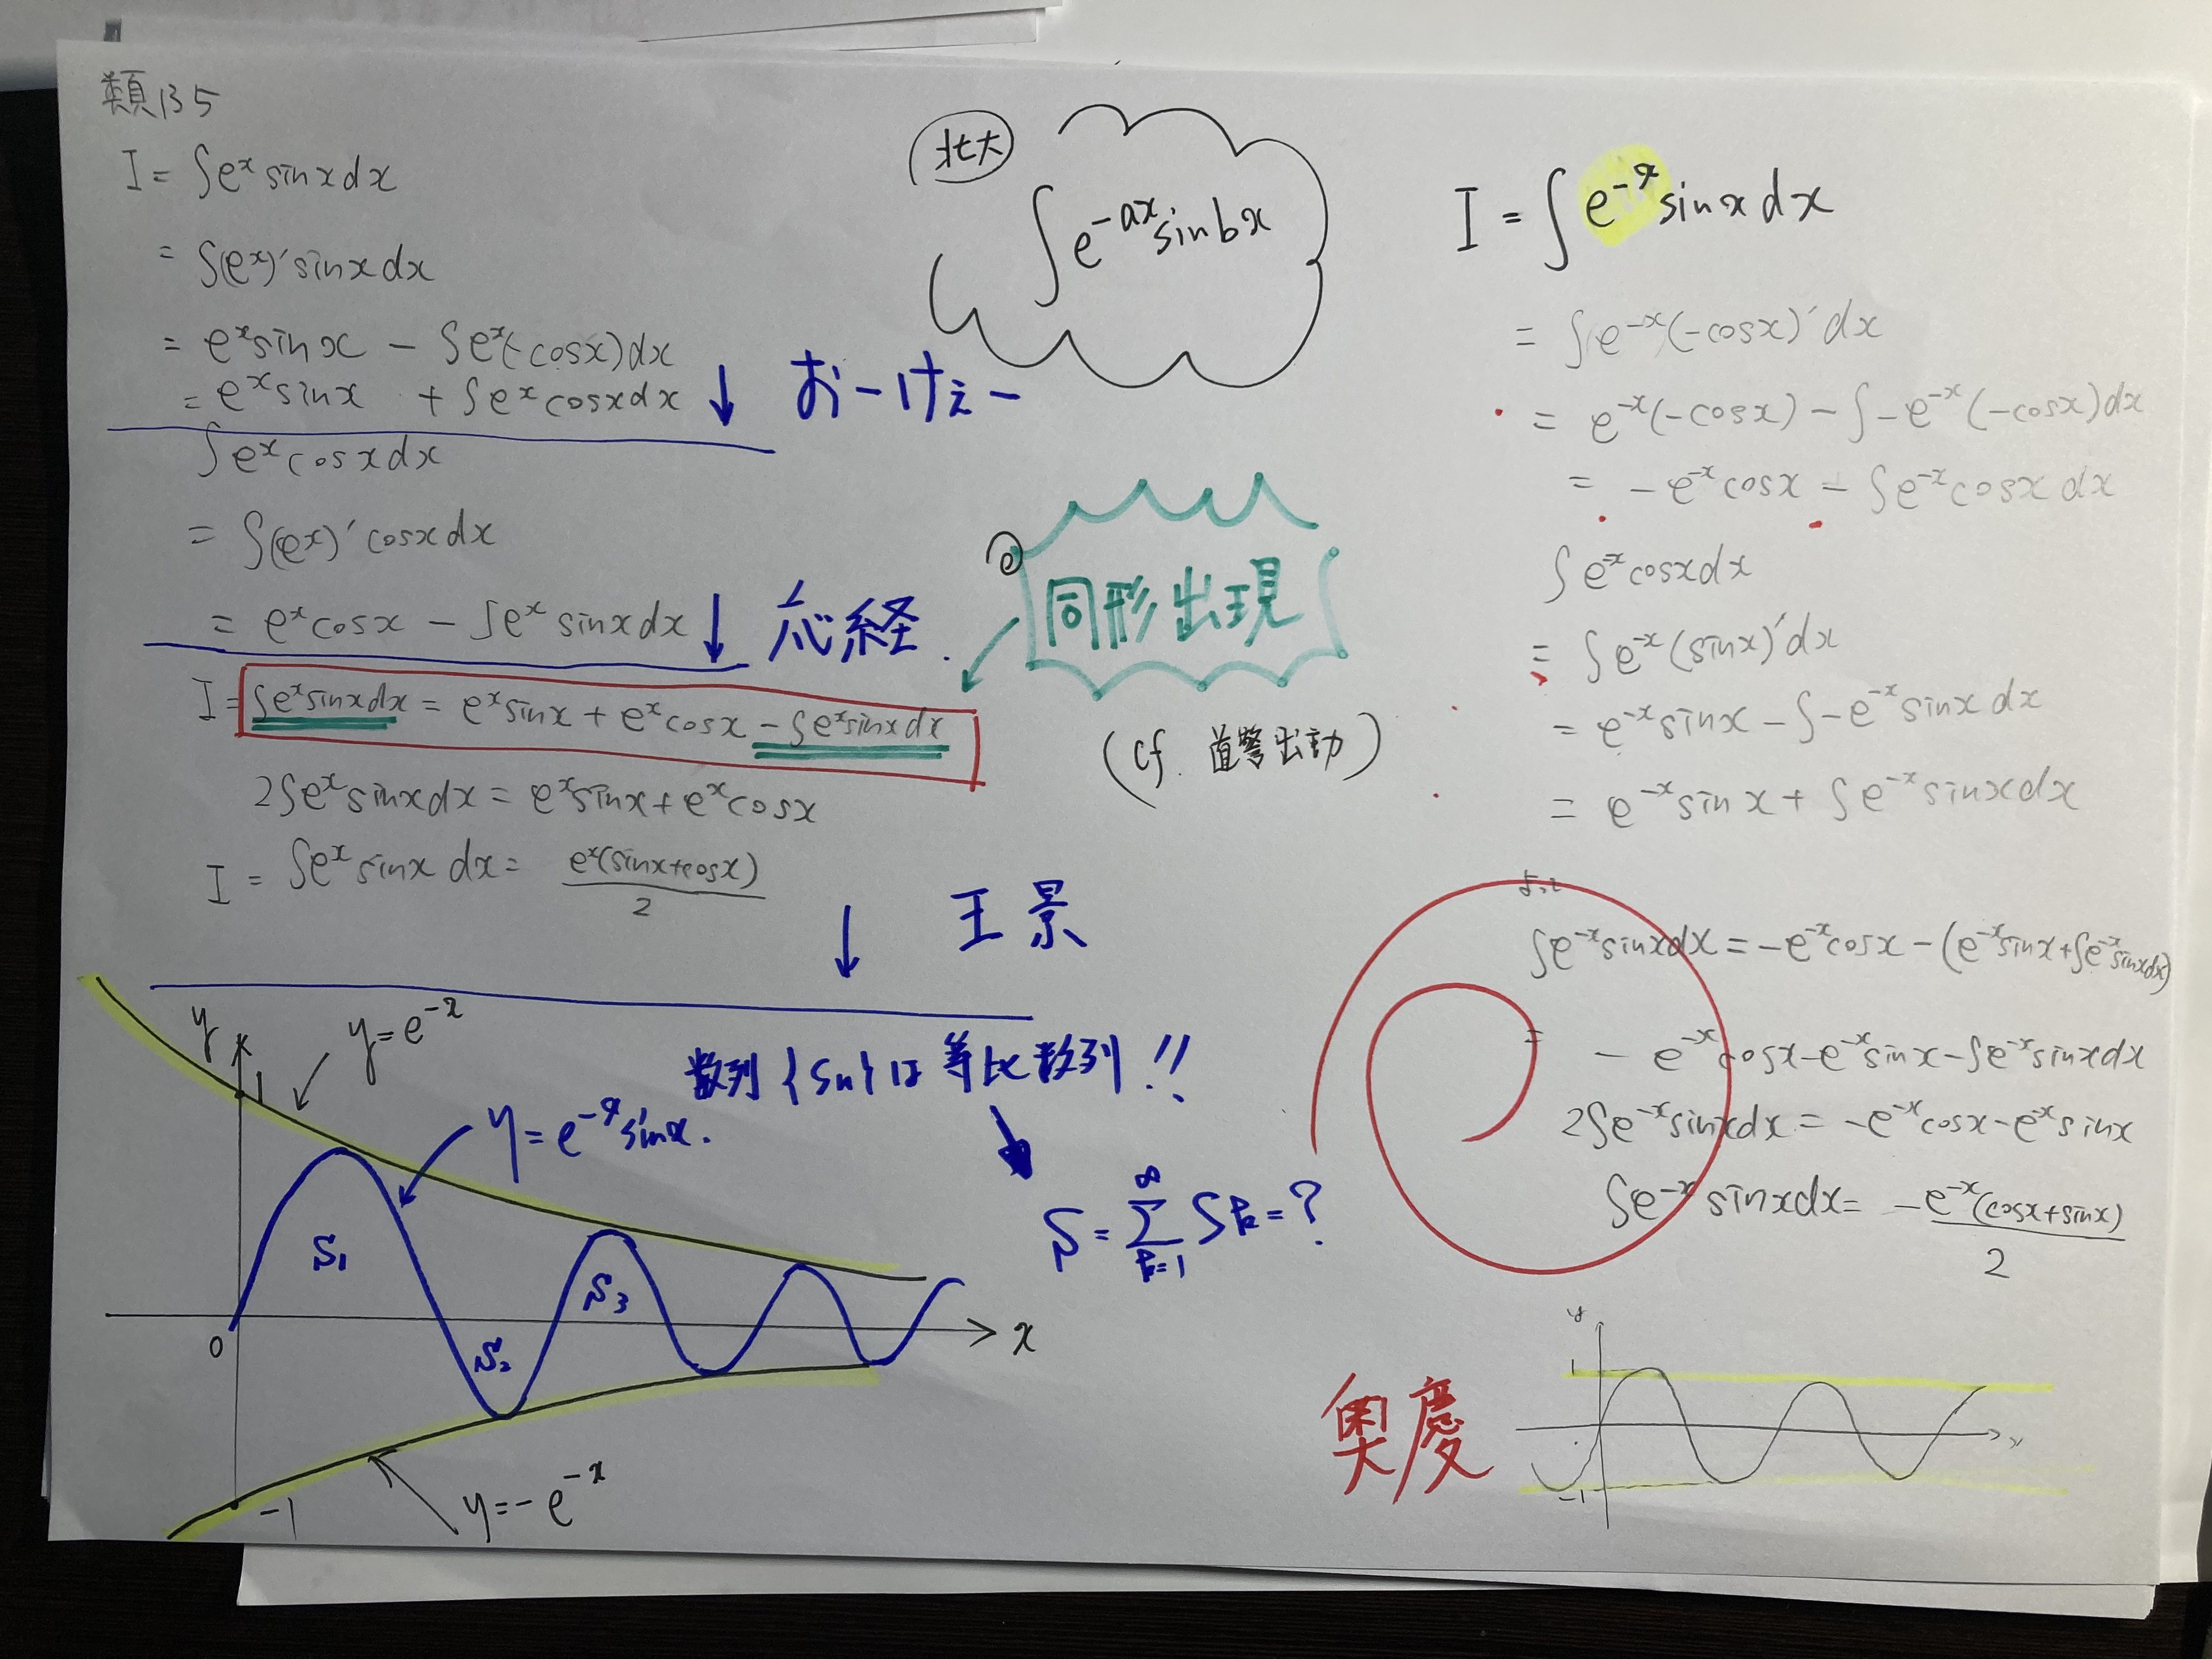 類135
I = ∫e^x sinx dx
= ∫(e^x)' sinx dx
= e^x sinx - ∫e^x(-cosx)dx
= e^x sinx + ∫e^x cosx dx
↓ おーけぇー
∫e^x cosx dx
= ∫(e^x)' cosx dx
= e^x cosx - ∫e^x sinx dx
↓ 応経.
I = ∫e^x sinx dx = e^x sinx + e^x cosx - ∫e^x sinx dx
2∫e^x sinx dx = e^x sinx + e^x cosx
I = ∫e^x sinx dx = e^x(sinx+cosx)/2
↓ 王景
北大
∫e^{-ax} sinbx
同形出現
(cf. 道警出動)
数列{Sn}は等比数列!!
S = Σ_{k=1}^{∞} Sk = ?
y
1
y = e^{-x}
y = e^{-x} sinx.
S1
S2
S3
0
x
-1
y = -e^{-x}
I = ∫e^{-x} sinx dx
= ∫e^{-x}(-cosx)' dx
= e^{-x}(-cosx) - ∫-e^{-x}(-cosx)dx
= -e^{-x} cosx - ∫e^{-x} cosx dx
∫e^{-x} cosx dx
= ∫e^{-x}(sinx)' dx
= e^{-x} sinx - ∫-e^{-x} sinx dx
= e^{-x} sinx + ∫e^{-x} sinx dx
よって
∫e^{-x} sinx dx = -e^{-x} cosx - (e^{-x} sinx + ∫e^{-x} sinx dx)
= -e^{-x} cosx - e^{-x} sinx - ∫e^{-x} sinx dx
2∫e^{-x} sinx dx = -e^{-x} cosx - e^{-x} sinx
∫e^{-x} sinx dx = -e^{-x}(cosx+sinx)/2
奥慶
y
1
x
-1